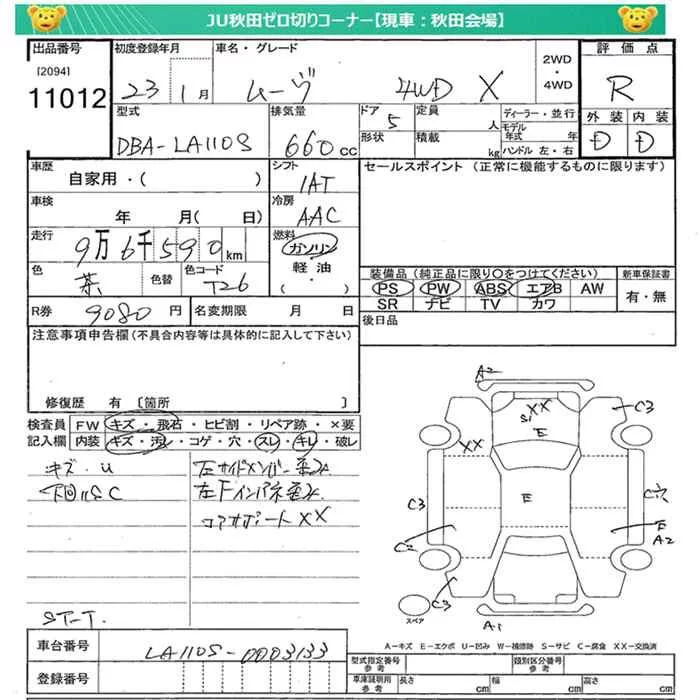 JU秋田ゼロ切りコーナー【現車：秋田会場】
出品番号
[2094]
11012
初度登録年月
23 1月
車名・グレード
ムーヴ 4WD X
2WD
・
4WD
評価点
R
型式
DBA-LA110S
排気量
660cc
ドア 5
形状
定員 人
積載 kg
ディーラー・並行
モデル年式 年
ハンドル 左・右
外装 内装
D D
車歴
自家用・( )
シフト
1AT
セールスポイント (正常に機能するものに限ります)
車検
年 月( 日)
冷房
AAC
走行
9万6千590km
燃料
ガソリン
軽油
・( )
色
茶
色替
色コード
T26
装備品 (純正品に限り○をつけてください)
PS PW ABS エアB AW
SR ナビ TV カワ
新車保証書
有・無
R券 9080円
名変期限 月 日
後日品
注意事項申告欄(不具合内容等は具体的に記入して下さい)
修復歴 有 [箇所 ]
検査員記入欄
FW キズ・飛石・ヒビ割・リペア跡・×要
内装 キズ・汚れ・コゲ・穴・スレ・キレ・破レ
キズ・U
下回りSC
左サイドメンバー歪み
左Fインパネ歪み
コアサポートXX
ST-T
A2
XX
S1
E
C3
XX
C3
E
C穴
C2
E
A2
C3
A1
スペア
A－キズ E－エクボ U－凹み W－補修跡 S－サビ C－腐食 XX－交換済
車台番号 LA110S-0003133
登録番号
型式指定番号
参考
類別区分番号
参考
車庫証明用
参考
長さ cm 幅 cm 高さ cm